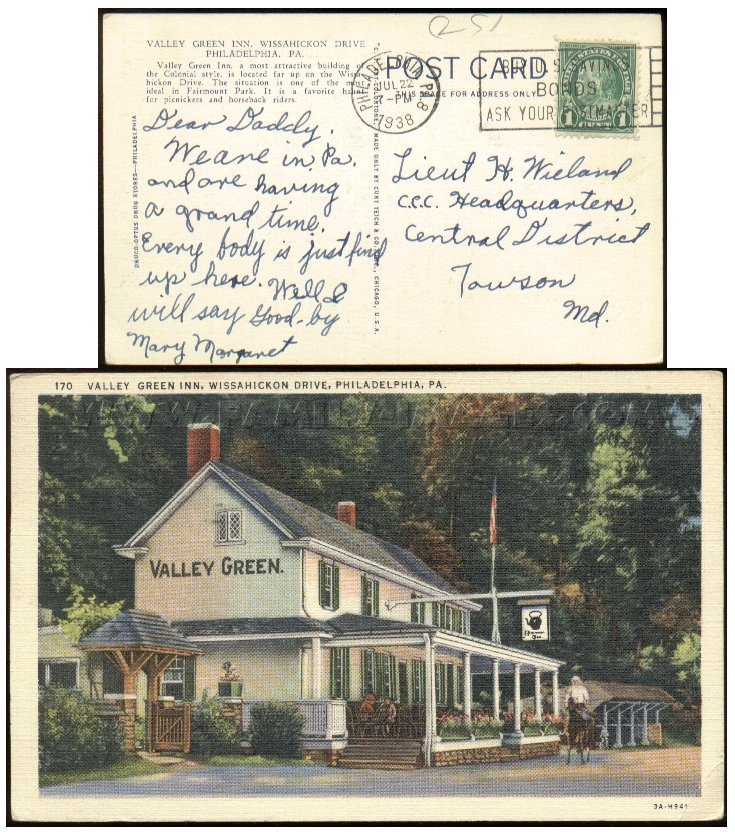 251
VALLEY GREEN INN, WISSAHICKON DRIVE
PHILADELPHIA, PA.
Valley Green Inn, a most attractive building of
the Colonial style, is located far up on the Wissa-
hickon Drive. The situation is one of the most
ideal in Fairmount Park. It is a favorite
for picnickers and horseback riders.
POST CARD
THIS SPACE FOR ADDRESS ONLY
PHILADELPHIA, PA.
JUL 22
PM
1938
BUY U.S. SAVINGS
BONDS
ASK YOUR POSTMASTER
1
DRUCO-OPTUS DRUG STORES—PHILADELPHIA
MADE ONLY BY CURT TEICH & CO., INC., CHICAGO, U.S.A.
Dear Daddy,
We are in Pa.
and are having
a grand time.
Every body is just find
up here. Well I
will say Good-by
Mary Margaret
Lieut H. Wieland
C.C.C. Headquarters,
Central District
Towson
Md.
170 VALLEY GREEN INN, WISSAHICKON DRIVE, PHILADELPHIA, PA.
VALLEY GREEN.
3A-H941